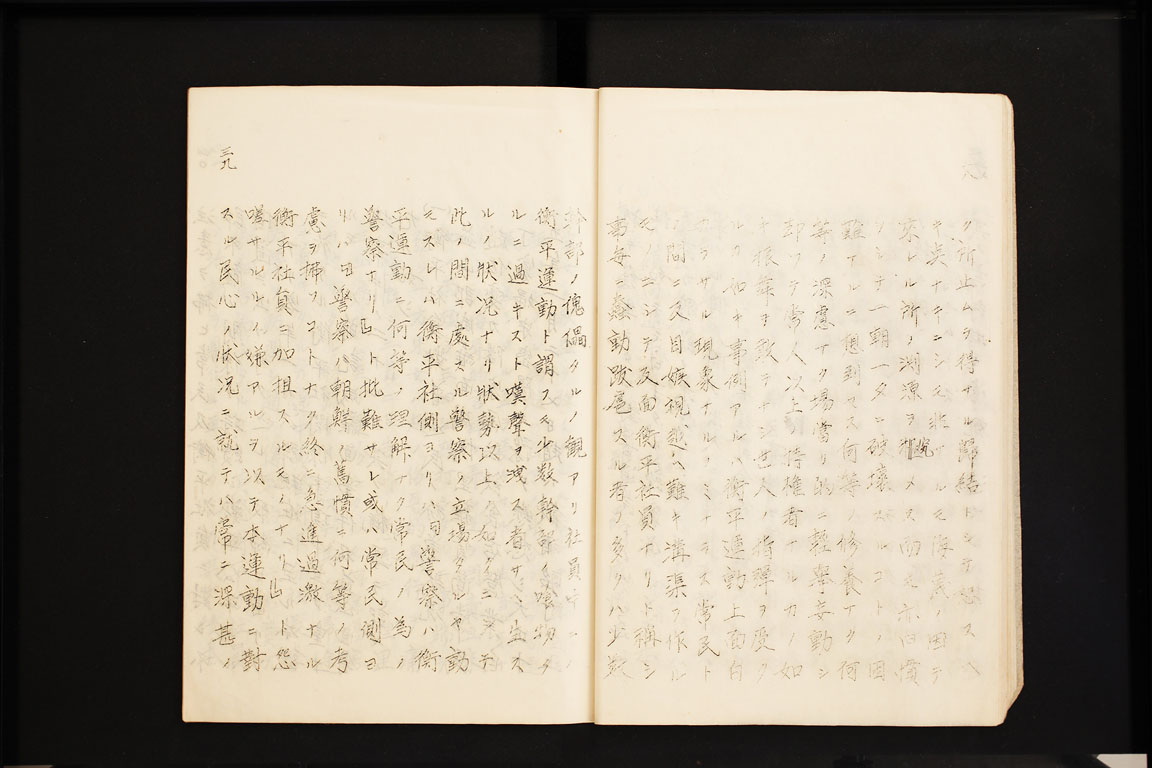 ク所止ムヲ得サル歸結ト
キ美ナキニシモ非サルモ ノ因テ
來レル所ノ淵源ヲ究メス而モ舊慣
ノシテ一朝一夕ニ破壞 ルコトノ困
難ナルニ想到セス何等ノ修養ナク何
等ノ深慮ナク場當リ的ニ輕擧妄動シ
却ツテ常人以上ノ特權者ナルカノ如
キ振舞ヲ敢テナシ世人ノ指彈ヲ受ク
ルカ如キ事例アルハ衡平運動上面白
カラサル現象ナルノミナラス常民ト
ノ間ニ反目嫉視越ヘ難キ溝渠ヲ作ル
モノニシテ反面衡平社員ナリト稱シ
事每ニ蠢動跋扈スル者ノ多クハ少數
幹部ノ傀儡タルノ觀アリ社員中ニハ
衡平運動ト謂フモ少數幹部ノ喰物タ
ルニ過キスト嘆聲ヲ洩ス者サヘ生ス
ルノ狀況ナリ狀勢以上ノ如クニシテ
此ノ間ニ處スル警察ノ立場タルヤ動
モスレハ衡平社側ヨリハ「警察ハ衡
平運動ニ何等ノ理解ナク常民ノ為ノ
警察ナリ」ト批難サレ或ハ常民側ヨ
リハ「警察ハ朝鮮ノ舊慣ニ何等ノ考
慮ヲ拂フコトナク終ニ急進過激ナル
衡平社員ニ加担スルモノナリ」ト怨
嗟サルルノ嫌アルヲ以テ本運動ニ對
スル民心ノ狀況ニ就テハ常ニ深甚ノ
三九